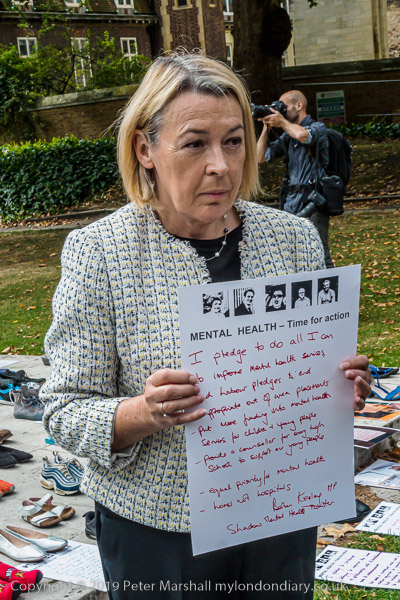 MENTAL HEALTH – Time for action
I pledge to do all I can
to improve mental health services,
Labour pledges to end
inappropriate out of area placements
Put more funding into mental health
Services for children & young people
- provide a counsellor for every high
School to support our young people
- equal priority for mental health
- homes not hospitals
MP
Shadow Mental Health Minister
© 2019 Peter Marshall mylondondiary.co.uk